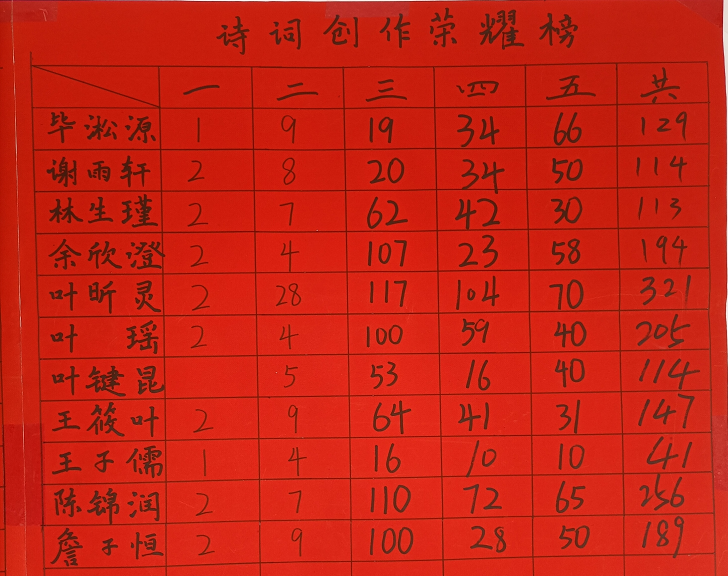 诗词创作荣耀榜
一 二 三 四 五 共
毕淞源 1 9 19 34 66 129
谢雨轩 2 8 20 34 50 114
林生瑾 2 7 62 42 30 113
余欣澄 2 4 107 23 58 194
叶昕灵 2 28 117 104 70 321
叶瑶 2 4 100 59 40 205
叶键昆 5 53 16 40 114
王筱叶 2 9 64 41 31 147
王子儒 1 4 16 10 10 41
陈锦润 2 7 110 72 65 256
詹子恒 2 9 100 28 50 189